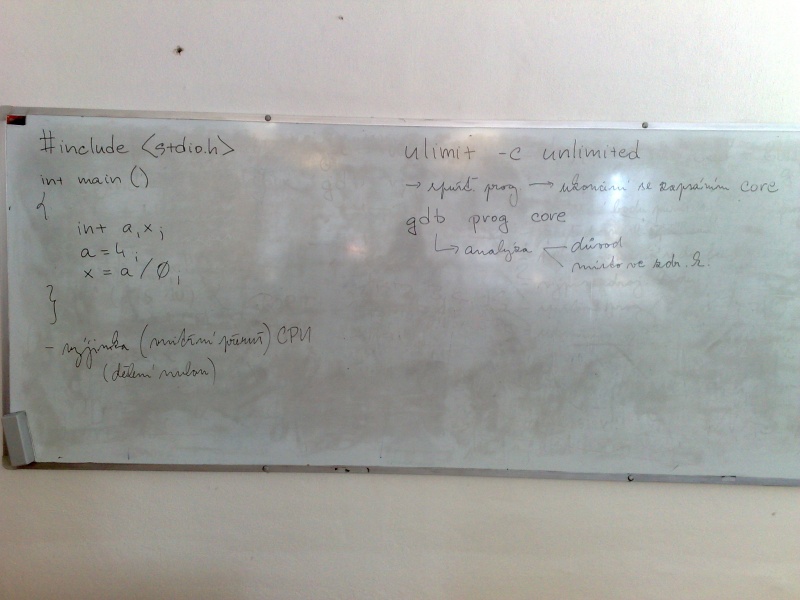 #include <stdio.h>
int main ()
{
int a,x;
a=4;
x = a/0;
}
- výjimka (vnitřní přeruš) CPU
(dělení nulou)
ulimit -c unlimited
→ spušt. prog → ukončení se zapsáním core
gdb prog core
↳ analýza
důvod
místo ve zdr. k.